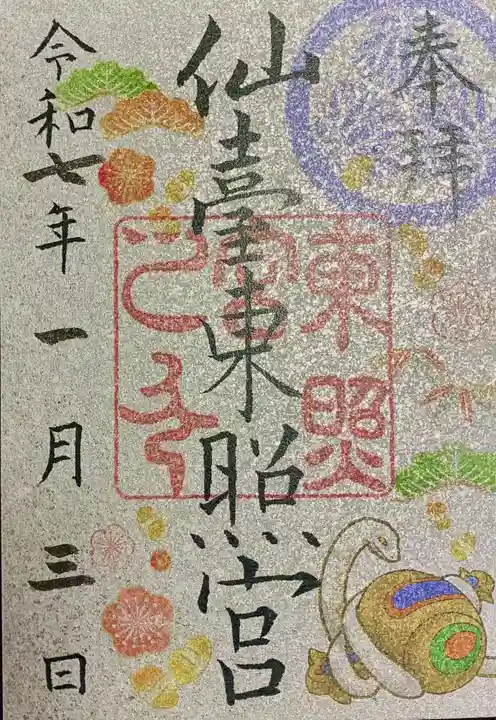 奉拝
仙臺東照宮
東照宮
令和七年一月三日